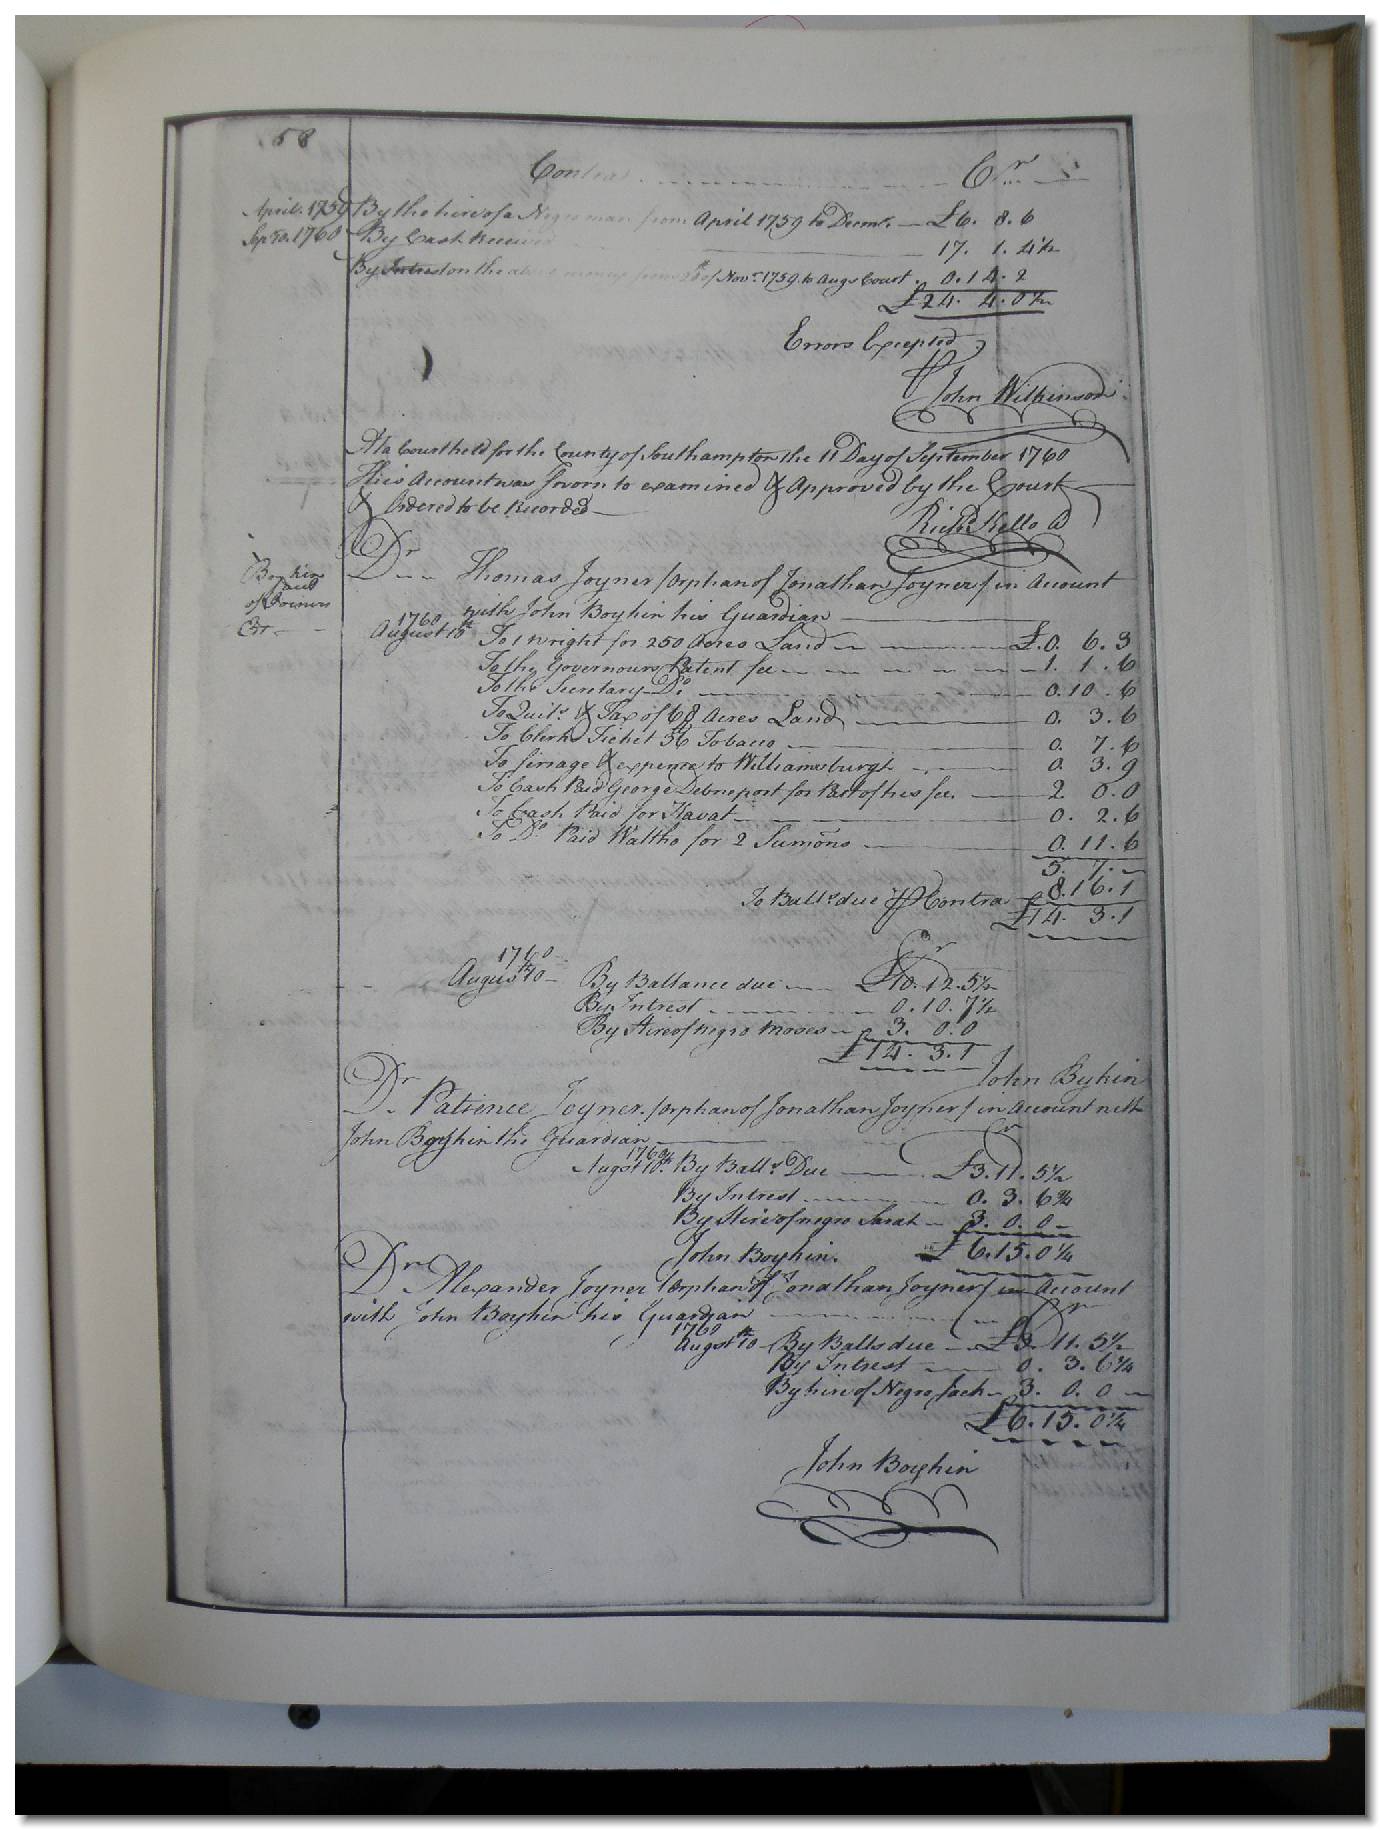 58
Contra Cr
April. 1759 By the hire of a Negro man from April 1759 to Decemr. £6. 8. 6
Sepr 1760 By Cash Received 17. 1. 4½
By Intrest on the above money from of Novr. 1759. to Augs Court. 0. 14. 2
£24. 4. 0½
Errors Excepted
John Wilkinson
At a Court held for the County of Southampton the 11 Day of September 1760
This Account was Sworn to examined & Approved by the Court
& Ordered to be Recorded
Richd. Kello
Boykin
of Joiners
Dr Thomas Joyner /orphan of Jonathan Joyner/ in Account
with John Boykin his Guardian
1760
August 10th To 1 wright for 250 Acres Land £.0. 6. 3
To the Governours Patent fee 1. 1. 6
To the Secretary Do. 0. 10. 6
To Quits. & Tax of 68 Acres Land 0. 3. 6
To Clerks Ticket 36 Tobacco 0. 7. 6
To firiage & expence to Williamsburgh 0. 3. 9
To Cash Paid George for Part of his fee. 2. 0. 0
To Cash Paid for 0. 2. 6
To Do. Paid Waltho for 2 Sumons 0. 11. 6
5. 7. -
To Balle. due P Contra 8. 16. 1
£14. 3. 1
Cr
1760
August 10th By Ballance due £10. 12. 5½
By Intrest 0. 10. 7½
By Hire of negro Moses 3. 0. 0
£14. 3. 1
John Bykin
Dr Patience Joyner /orphan of Jonathan Joyner/ in Account with
John Boykin the Guardian
Cr
1760
Augst 10th. By Balle. Due £3. 11. 5½
By Intrest 0. 3. 6¾
By Hire of negro Sarah 3. 0. 0
John Boykin. £6. 15. 0¼
Dr Alexander Joyner /orphan of Jonathan Joyner/ in Account
with John Boykin his Guardian
Cr
1760
Augst 10th By Balle due £3. 11. 5½
By Intrest 0. 3. 6¾
By hire of Negro Jack 3. 0. 0
£6. 15. 0¼
John Boykin